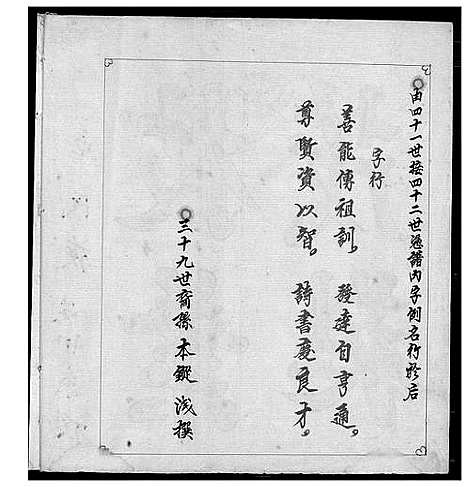 由四十一世接四十二世愿譜內字例名行於后
字行
善能傳祖訓。發達自亨通。
尊賢資以智。詩書慶良才。
三十九世裔孫 本 淺撰